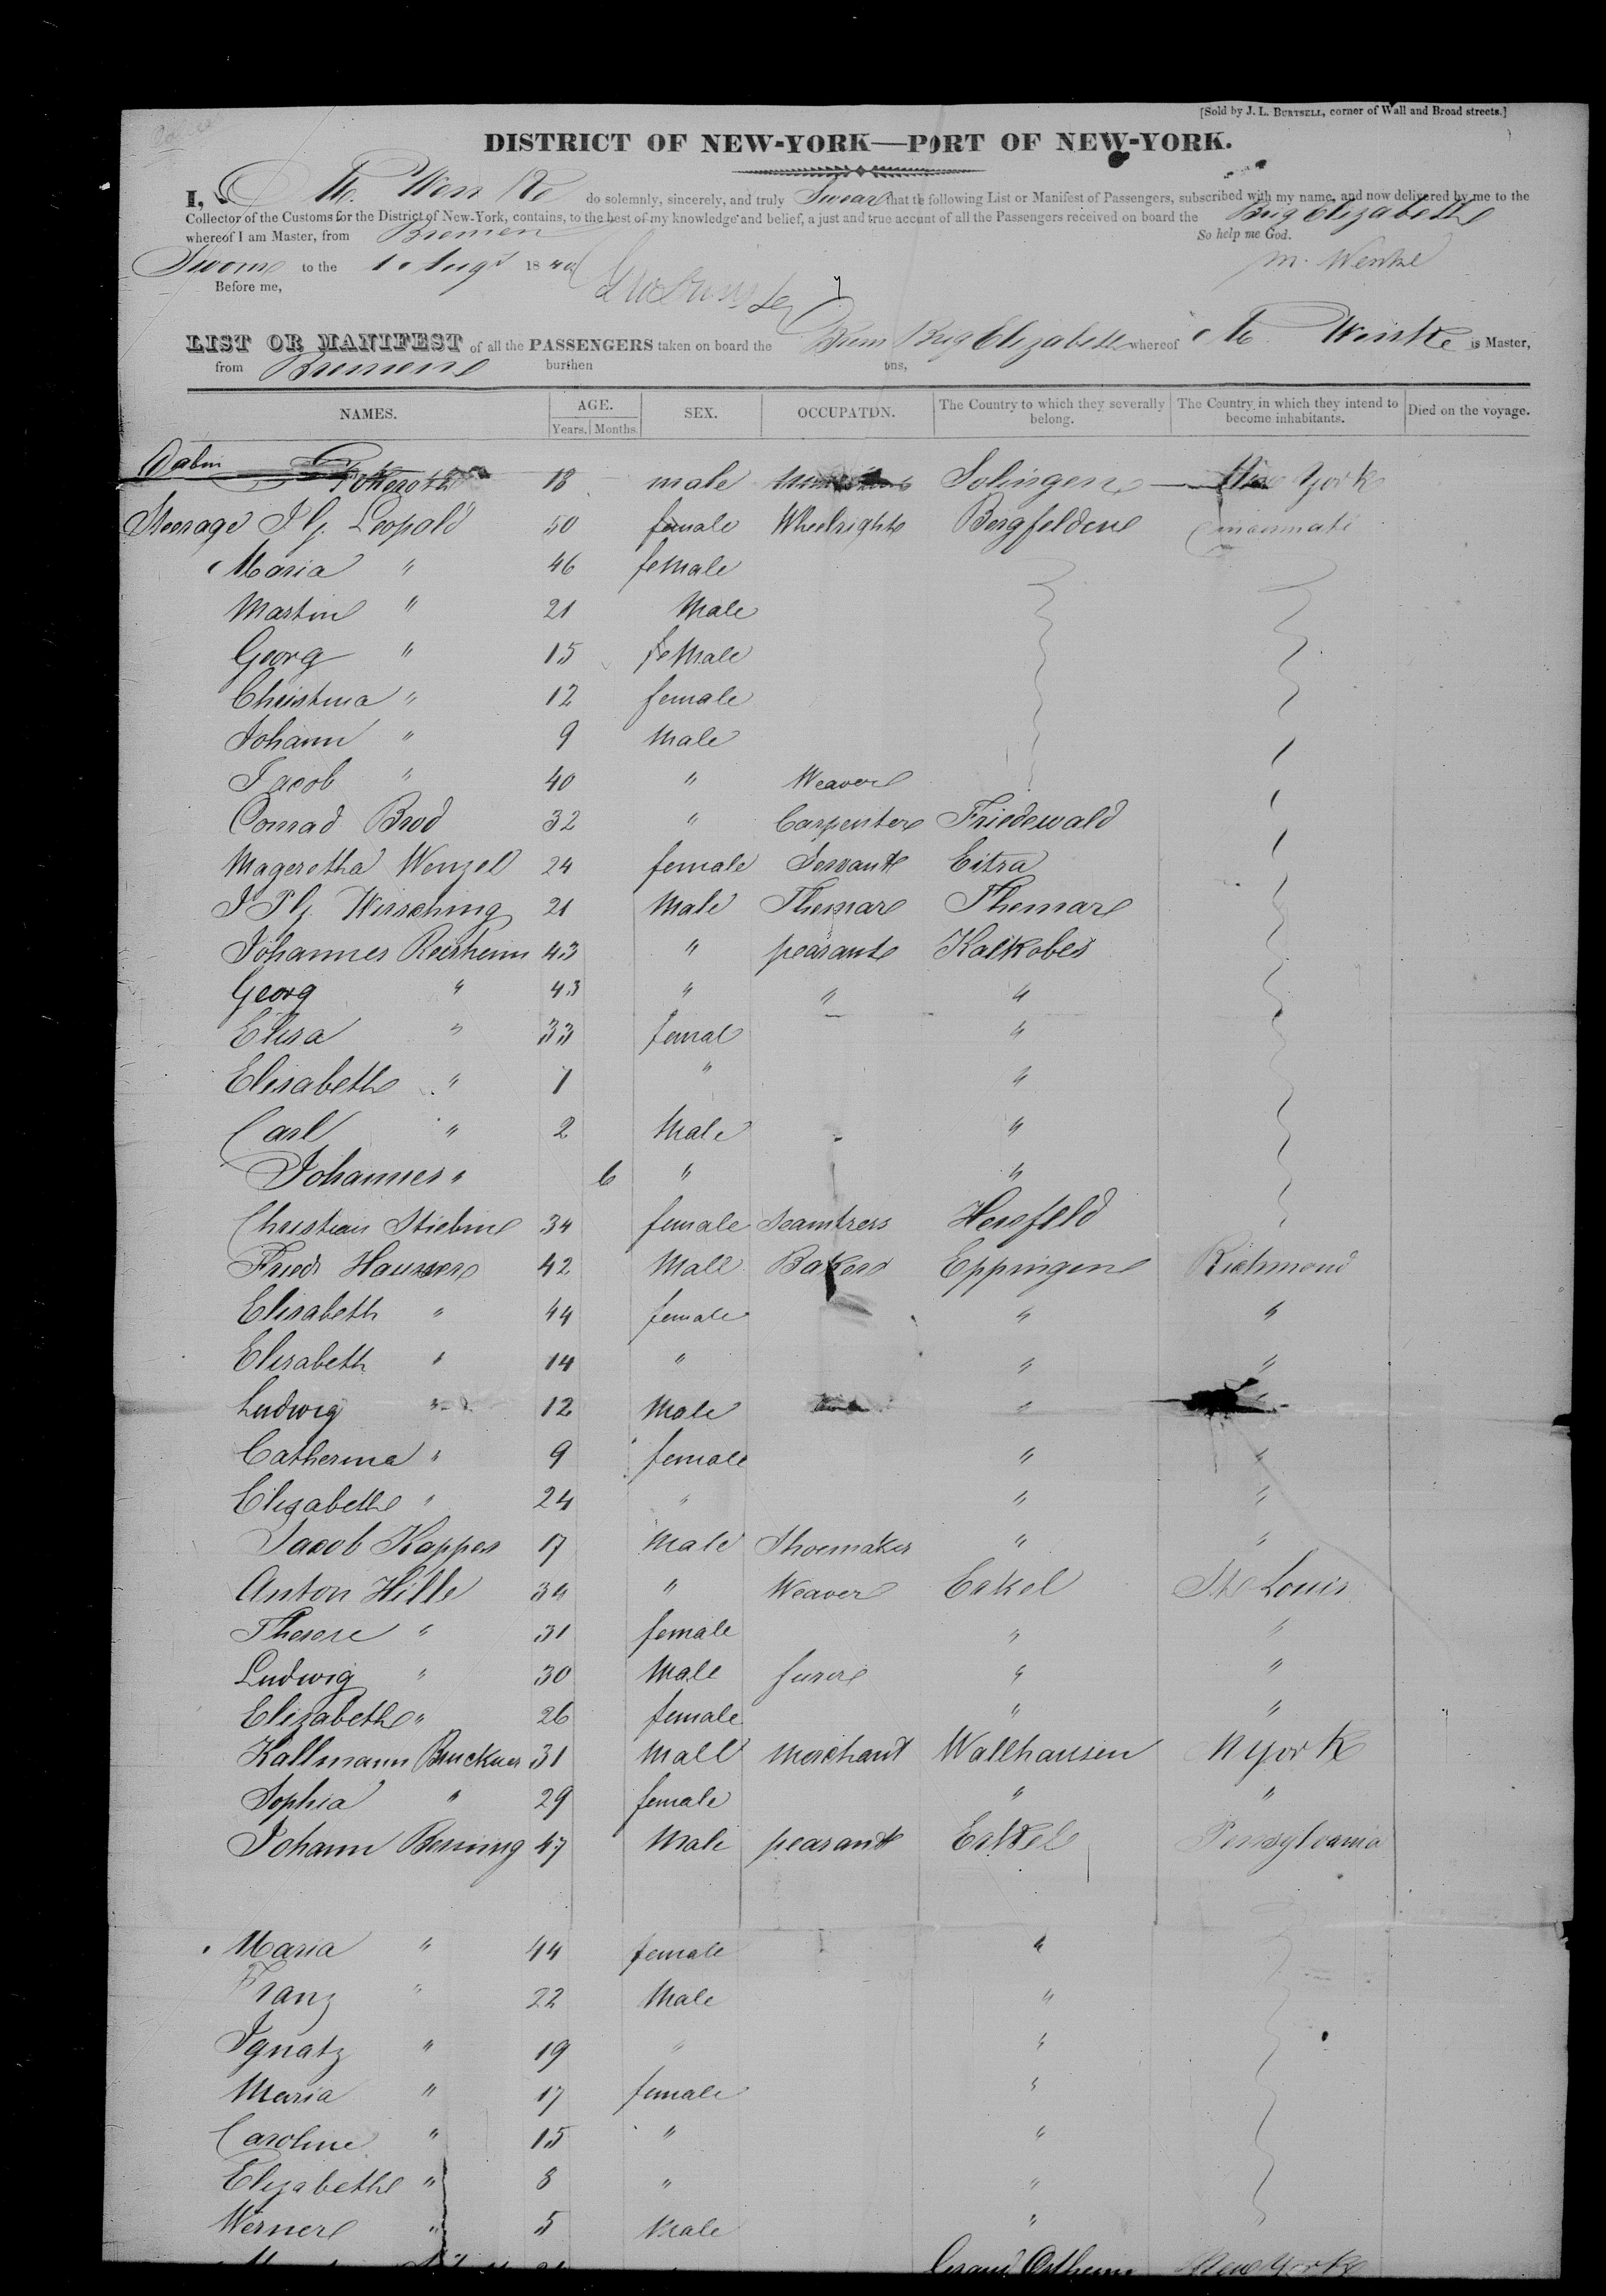 [Sold by J. L. BURTSELL, corner of Wall and Broad streets.]
DISTRICT OF NEW-YORK—PORT OF NEW-YORK.
I, M. Wenke do solemnly, sincerely, and truly Swear that the following List or Manifest of Passengers, subscribed with my name, and now delivered by me to the
Collector of the Customs for the District of New-York, contains, to the best of my knowledge and belief, a just and true account of all the Passengers received on board the Brig Elizabeth
whereof I am Master, from Bremen So help me God.
Sworn to the 1 Augt 1840 M. Wenke
Before me,
LIST OR MANIFEST of all the PASSENGERS taken on board the Brem Brig Elizabeth whereof M. Wenke is Master,
from Bremen burthen tons,
NAMES. AGE. SEX. OCCUPATION. The Country to which they severally belong. The Country in which they intend to become inhabitants. Died on the voyage.
Years. Months.
Cabin 18 male Solingen New York
Steerage J G. Leopold 50 male Wheelright Bergfelden Cincinnati
Maria " 46 female
Martin " 21 Male
Georg " 15 Male
Christina " 12 female
Johann " 9 Male
Jacob " 40 " Weaver
Conrad Brod 32 " Carpenter Friedewald
Mageretha Wenzel 24 female Servant Eitra
J Wirsching 21 Male Themar Themar
Johannes 43 " peasant Kalkobes
Georg " 43 " " "
Elisa " 33 femal "
Elisabeth " 1 " "
Carl " 2 Male "
Johannes " 6 " "
Christian Stiebin 34 female Seamtress Hersfeld
Friedr Hausser 42 Male Baker Eppingen Richmond
Elisabeth " 44 female " "
Elisabeth " 14 " " "
Ludwig " 12 Male " "
Catherina " 9 female " "
Elizabeth " 24 " " "
Jacob Kappes 17 Male Shoemaker " "
Anton Hille 34 " Weaver Eakel St Louis
Therese " 31 female " "
Ludwig " 30 Male " "
Elizabeth " 26 female " "
Kallmann Bruckner 31 Male Merchant Wallhausen N York
Sophia " 29 female " "
Johann 47 Male peasant Eakel Pensylvania
Maria " 44 female "
Franz " 22 Male "
Ignatz " 19 " "
Maria " 17 female "
Caroline " 15 " "
Elizabeth " 8 " "
Werner " 5 Male "
Grand Ostheim New York